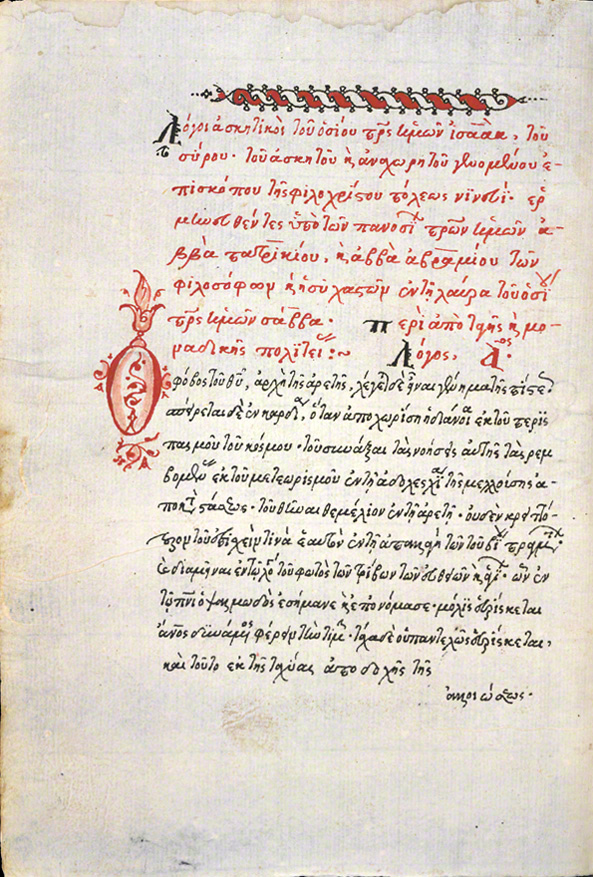 Λόγοι ἀσκητικοὶ τοῦ ὁσίου πρς ἡμῶν ἰσαὰκ, τοῦ
σύρου· τοῦ ἀσκητοῦ κ ἀναχωρητοῦ γενομένου ἐ-
πισκόπου τῆς φιλοχρίστου πόλεως νϊνευΐ· ἑρ
μηνευθέντες ὑπὸ τῶν πανοσί πρων ἡμῶν ἀ-
ββᾶ πατρικίου, κ ἀββᾶ ἀβραμίου τῶν
φιλοσόφων κ ἡσυχαστῶν ἐν τῆ λαύρα τοῦ ὁσΐ
πρς ἡμῶν σάββα· Περὶ ἀποταγῆς κ μο-
ναδικῆς πολϊτεί :~ Λόγος, Α ος·
Ὁ φόβος τοῦ θυ, ἀρχὴ τῆς ἀρετῆς, λέγεται δὲ εἶναι γέννημα τῆς πίστε
σπείρεται δὲ ἐν τῆ καρδί, ὅταν ἀποχωρίση ἡ διάνοι ἐκ τοῦ περισ
πασμοῦ τοῦ κόσμου· τοῦ συνάξαι τὰς νοήσεις αὐτῆς τὰς ρεμ
βομέν ἐκ τοῦ μετεωρισμοῦ ἐν τῆ ἀδολεσχί τῆς μελλούσης ἀ-
ποκ τάσεως· τοῦ θεῖναι θεμέλιον ἐν τῆ ἀρετῆ· οὐδὲν κρεῖττό-
τερον τοῦ στοιχεῖν τινὰ ἑαυτὸν ἐν τῆ τῶν τοῦ βΐ πραγμτ
κ διαμεῖναι ἐν τῶ λόγ τοῦ φωτὸς τῶν τρίβων τῶν εὐθειῶν κ ἁγί· ὧν ἐν
τῶ πνι ὁ ψαλμωδὸς ἐσήμανε κ ἐπονόμασε· μόλις εὑρίσκεται
ἄνος δυνάμενος φέρειν τὴν τιμ· τάχα δὲ οὐ παντελῶς εὑρίσκεται,
καὶ τοῦτο ἐκ τῆς ταχείας ὑποδοχῆς τῆς
ἀλλοιώσεως·